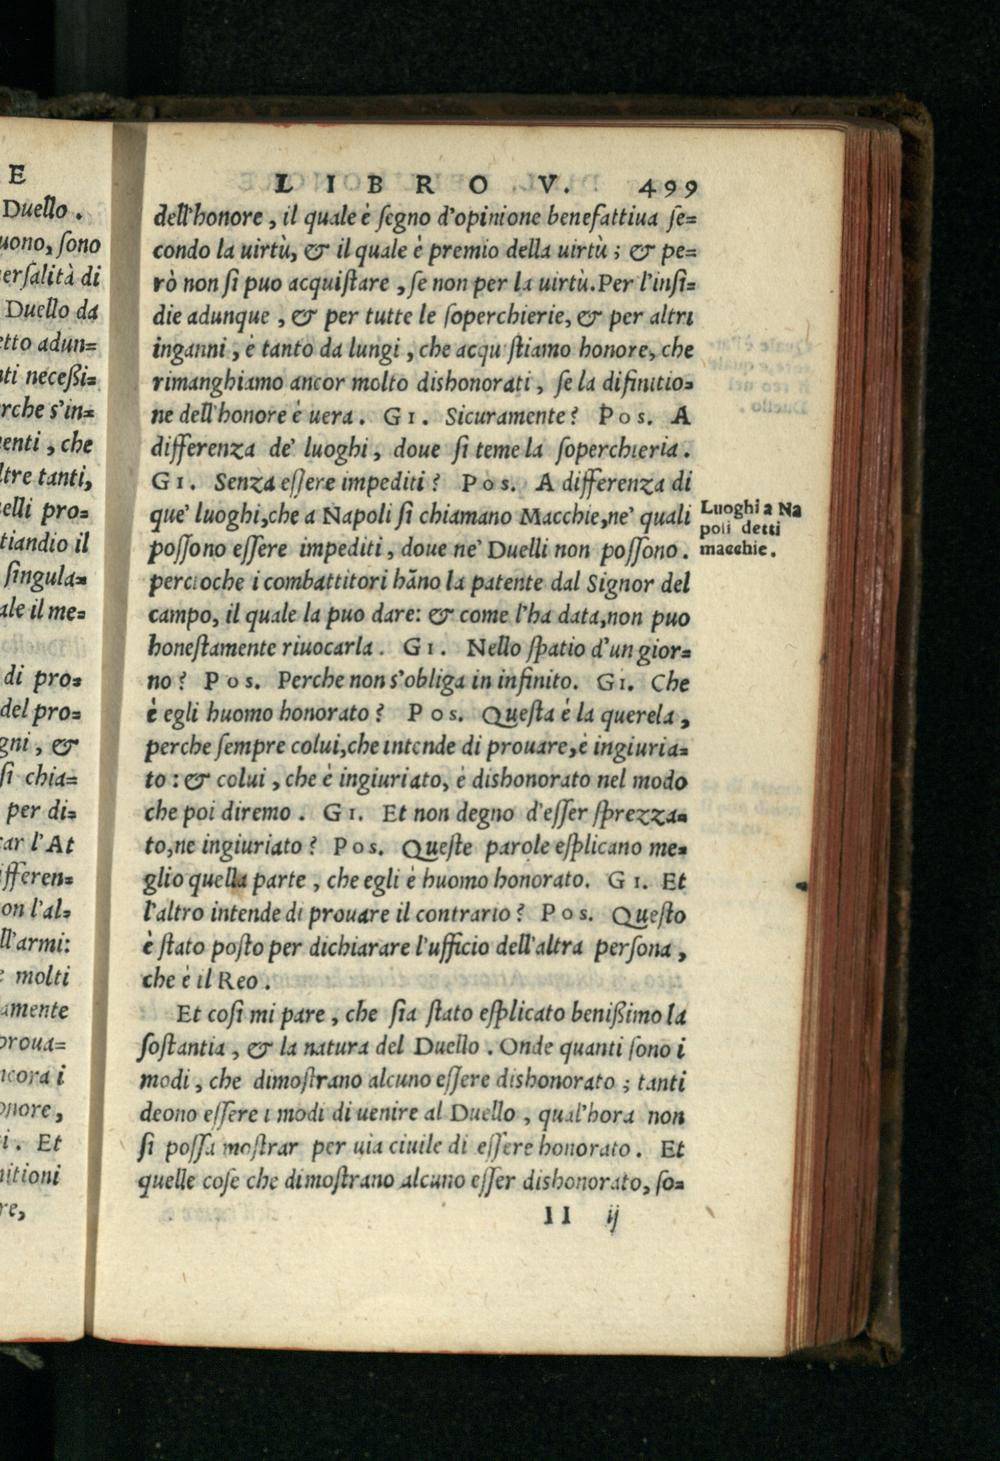 E
Duello.
uono, ſono
erſalità di
Duello da
etto adun=
ti neceßi=
rche s'in=
enti, che
ltre tanti,
elli pro=
tiandio il
ſingula=
ale il me=
di pro=
del pro=
gni, &
ſi chia=
per di=
ar l'At
ifferen=
on l'al=
ll'armi:
e molti
amente
proua=
ncora i
onore,
i. Et
nitioni
re,
LIBRO V. 499
dell'honore, il quale è ſegno d'opinione benefattiua ſe=
condo la uirtù, & il quale è premio della uirtù; & pe=
rò non ſi puo acquiſtare, ſe non per la uirtù. Per l'inſi=
die adunque, & per tutte le ſoperchierie, & per altri
inganni, è tanto da lungi, che acquiſtiamo honore, che
rimanghiamo ancor molto dishonorati, ſe la difinitio=
ne dell'honore è uera. GI. Sicuramente? Pos. A
differenza de' luoghi, doue ſi teme la ſoperchieria.
GI. Senza eſſere impediti? Pos. A differenza di
que' luoghi, che a Napoli ſi chiamano Macchie, ne' quali
poſſono eſſere impediti, doue ne' Duelli non poſſono.
percioche i combattitori hãno la patente dal Signor del
campo, il quale la puo dare: & come l'ha data, non puo
honeſtamente riuocarla. GI. Nello ſpatio d'un gior=
no? Pos. Perche non s'obliga in infinito. GI. Che
è egli huomo honorato? Pos. Queſta è la querela,
perche ſempre colui, che intende di prouare, è ingiuria=
to: & colui, che è ingiuriato, è dishonorato nel modo
che poi diremo. GI. Et non degno d'eſſer ſprezza=
to, ne ingiuriato? Pos. Queſte parole eſplicano me=
glio quella parte, che egli è huomo honorato. GI. Et
l'altro intende di prouare il contrario? Pos. Queſto
è ſtato poſto per dichiarare l'ufficio dell'altra perſona,
che è il Reo.
Et coſi mi pare, che ſia ſtato eſplicato benißimo la
ſoſtantia, & la natura del Duello. Onde quanti ſono i
modi, che dimoſtrano alcuno eſſere dishonorato; tanti
deono eſſere i modi di uenire al Duello, qual'hora non
ſi poſſa moſtrar per uia ciuile di eſſere honorato. Et
quelle coſe che dimoſtrano alcuno eſſer dishonorato, ſo=
II ij
Luoghi a Na
poli detti
macchie.